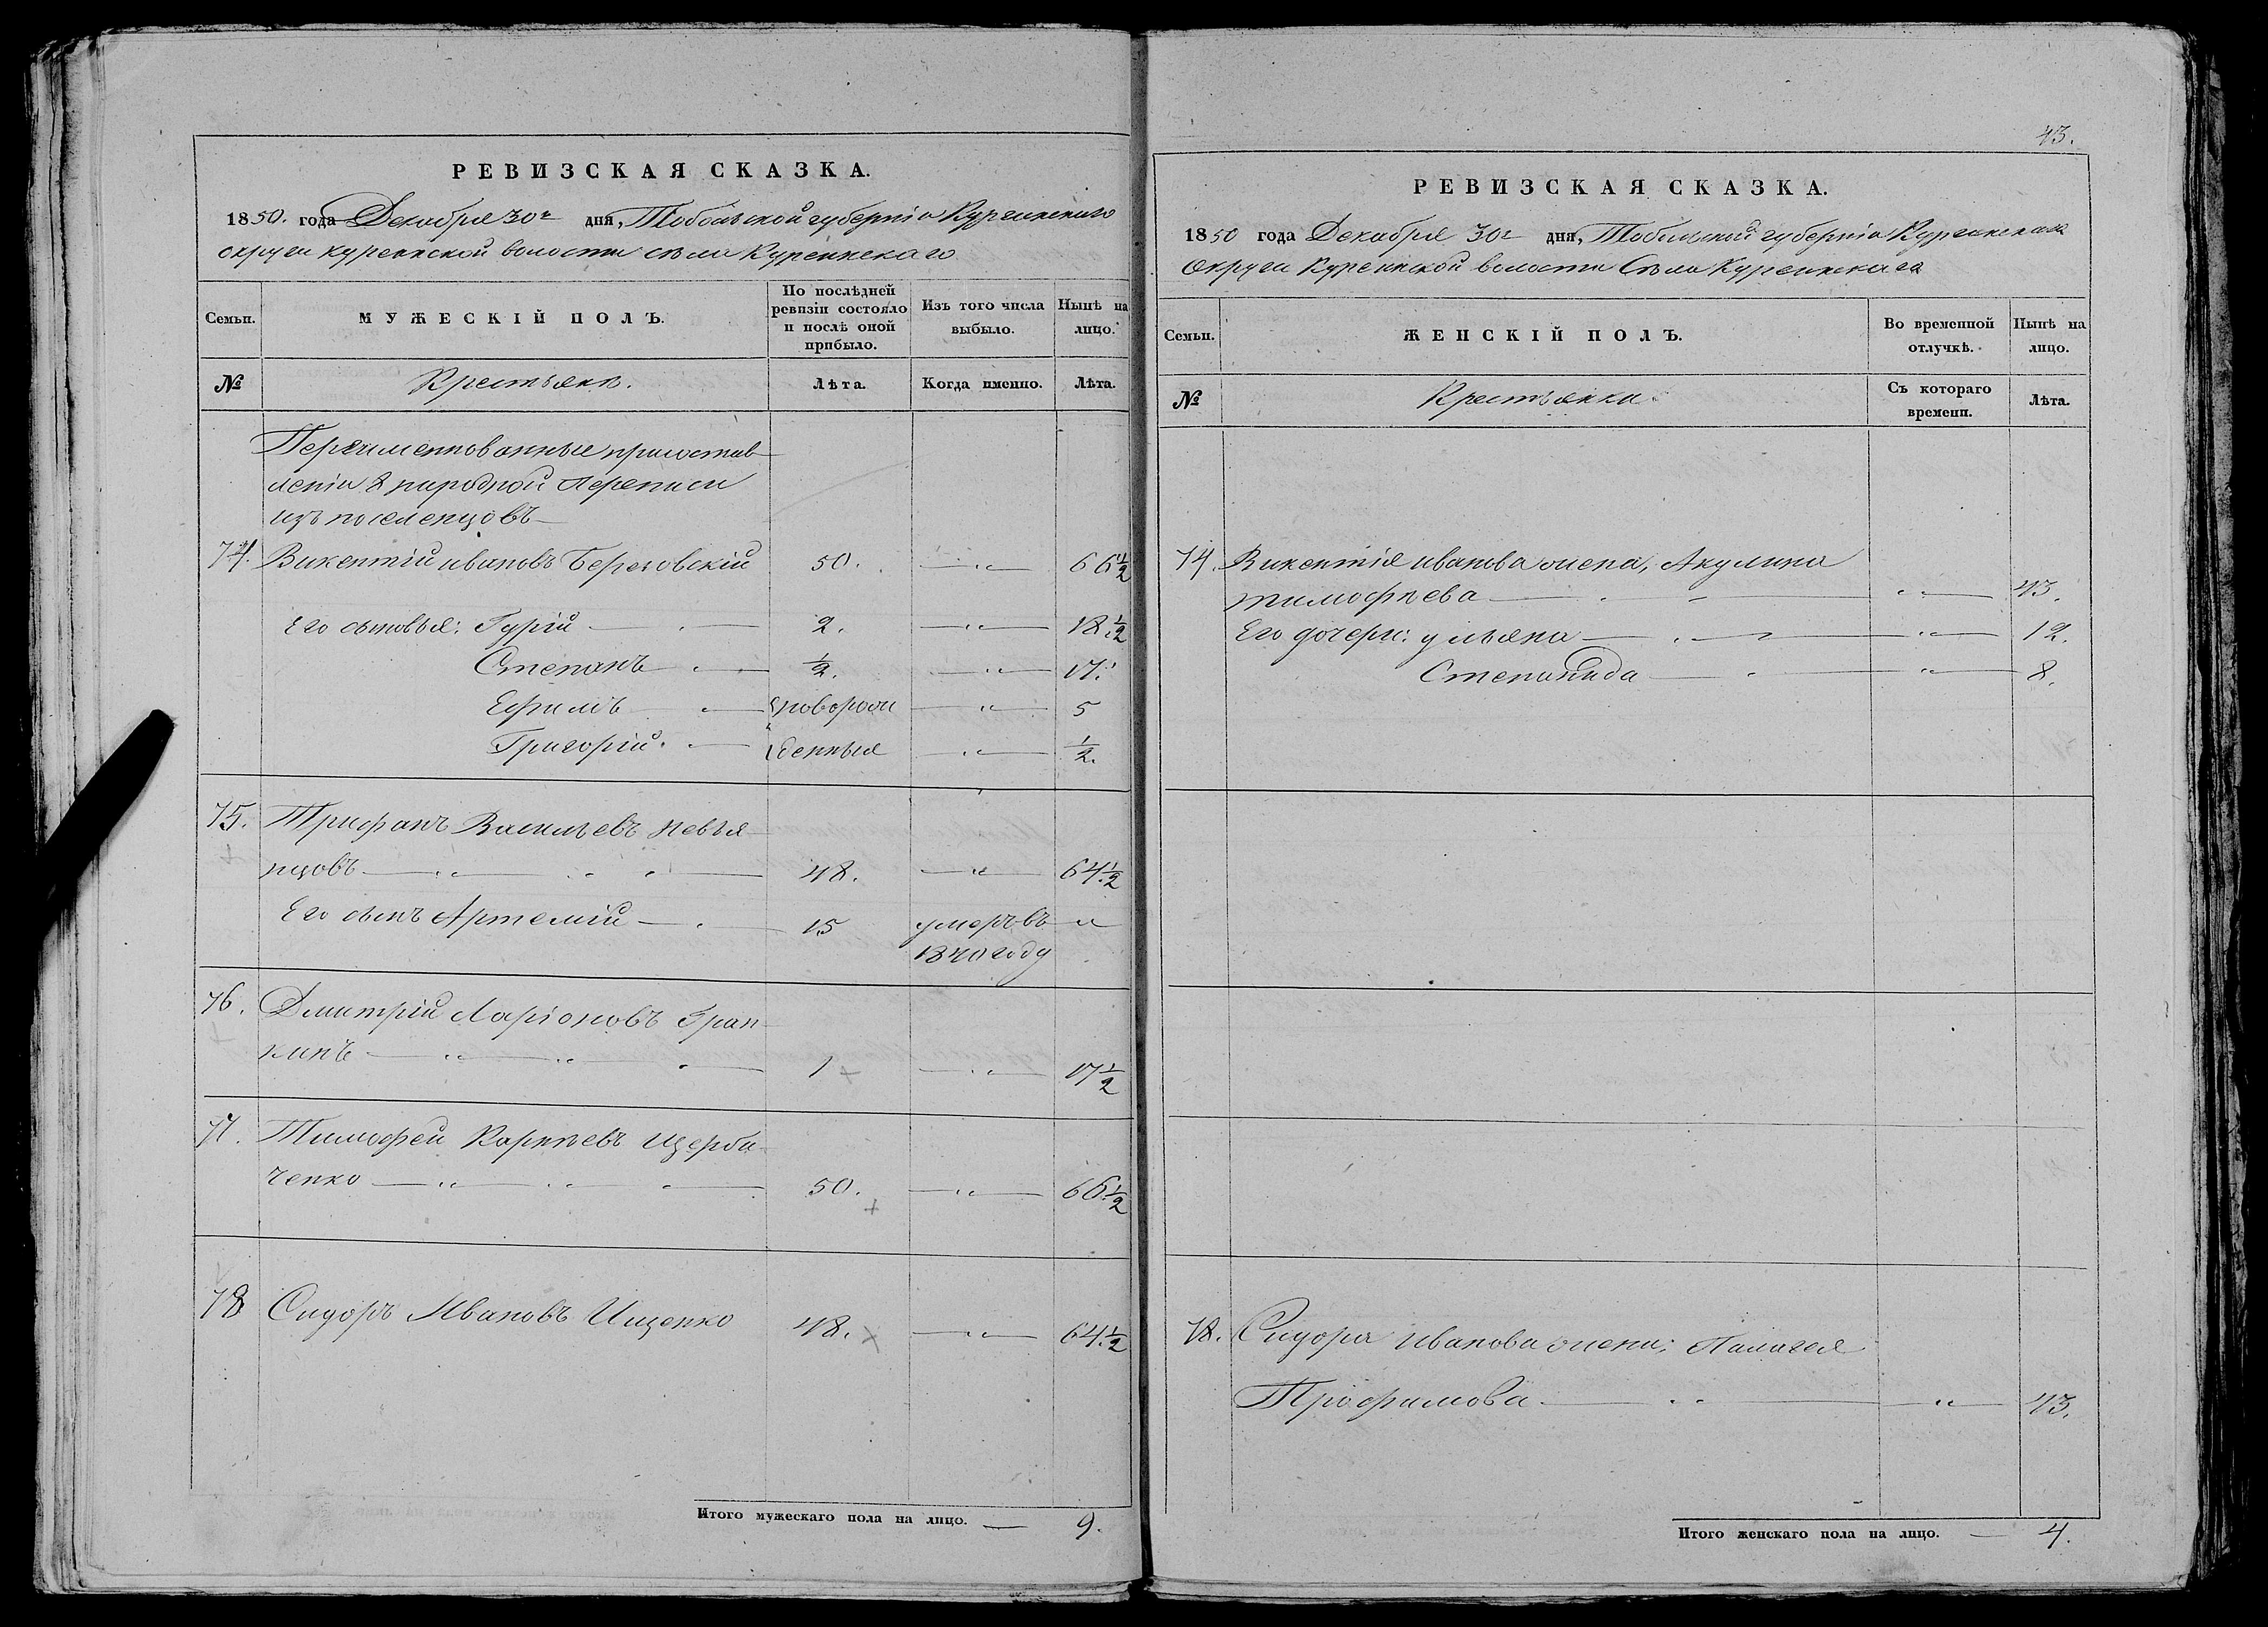 РЕВИЗСКАЯ СКАЗКА.
1850. года Декабря 30г дня, Тобольской губерніи Курганскаго
округи куреинской волости села Куреинскаго
Семьи. МУЖЕСКІЙ ПОЛЪ. По послѣдней ревизіи состояло и послѣ оной прибыло. Изъ того числа выбыло. Нынѣ на лицо.
№ Крестьяне. Лѣта. Когда именно. Лѣта.
Переименованные при состав
леніи 8 народной переписи
изъ поселенцовъ
74. Викентій ивановъ Береговскій 50. —„— 66 1/2
Его сыновья: Гурій — 2. —„— 18. 1/2
Степанъ — 1/2. —„— 17.
Ефимъ — новорож —„— 5
Григорій. — денныя —„— 1/2.
75. Трифанъ Васильевъ Невья
нцовъ — 48. —„— 64. 1/2
Его сынъ Артемій — 15 умеръ въ „
1840 году
76. Дмитрій Ларіоновъ Гран
кинъ — 1 —„— 17 1/2
77. Тимофей Карпѣевъ Щерба
ченко — 50. —„— 66. 1/2
78 Сидоръ Ивановъ Ищенко 48. —„— 64. 1/2
Итого мужескаго пола на лицо. — 9.
43.
РЕВИЗСКАЯ СКАЗКА.
1850 года Декабря 30г дня, Тобольской губерніи Курганская
округи Куреинской волости Села Куреинскаго
Семьи. ЖЕНСКІЙ ПОЛЪ. Во временной отлучкѣ. Нынѣ на лицо.
№ Крестьянки Съ котораго времени. Лѣта.
74. Викентія иванова жена, Акулина
тимофѣева — „ — 43.
Его дочери: ульяна — „ — 12.
Степанида — „ — 8.
78. Сидора иванова жена; Палагея
Трофимова — „ — 43.
Итого женскаго пола на лицо. — 4.